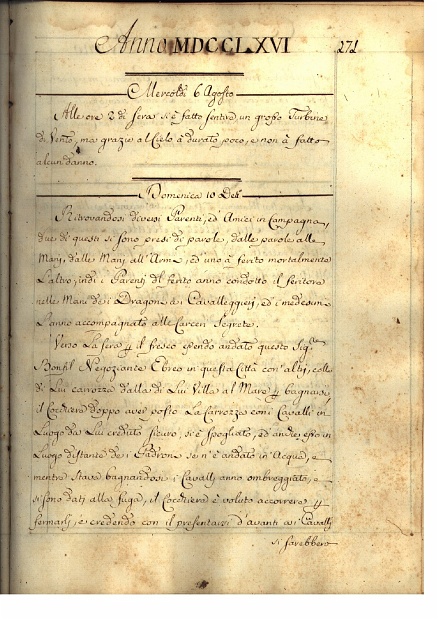 Anno MDCCLXVI 271
Mercoldi 6 Agosto
Alle ore 2 di sera si è fatto sentire un grosso Turbine
di Vento, ma grazie al Cielo à durato poco, e non à fatto
alcun danno.
Domenica 10 Detto
Ritrovandosi diversi Parenti, ed Amici in Campagna,
due di questi si sono presi di parole, dalle parole alle
Mani, dalle Mani all'Armi, ed uno à ferito mortalmente
l'altro, indi i Parenti del ferito anno condotto il feritore
nelle Mani de i Dragoni a Cavalleggieri, ed i medesimi
l'anno accompagnato alle Carceri Segrete.
Verso La sera p il fresco essendo andato questo Sigre
Bonfil Negoziante Ebreo in questa Città con altri, colla
di Lui carrozza dalla di Lui Villa al Mare p bagnarsi,
il Cocchiere doppo aver posto La Carrozza con i Cavalli in
Luogo da Lui creduto sicuro, si è spogliato, ed anch'esso in
Luogo distante de i Padroni se n'è andato in Acqua, e
mentre stava bagnandosi i Cavalli anno ombreggiato, e
si sono dati alla fuga, il Cocchiere è voluto accorrere p
fermarli, e credendo con il presentarsi d'avanti ai Cavalli
si sarebbero